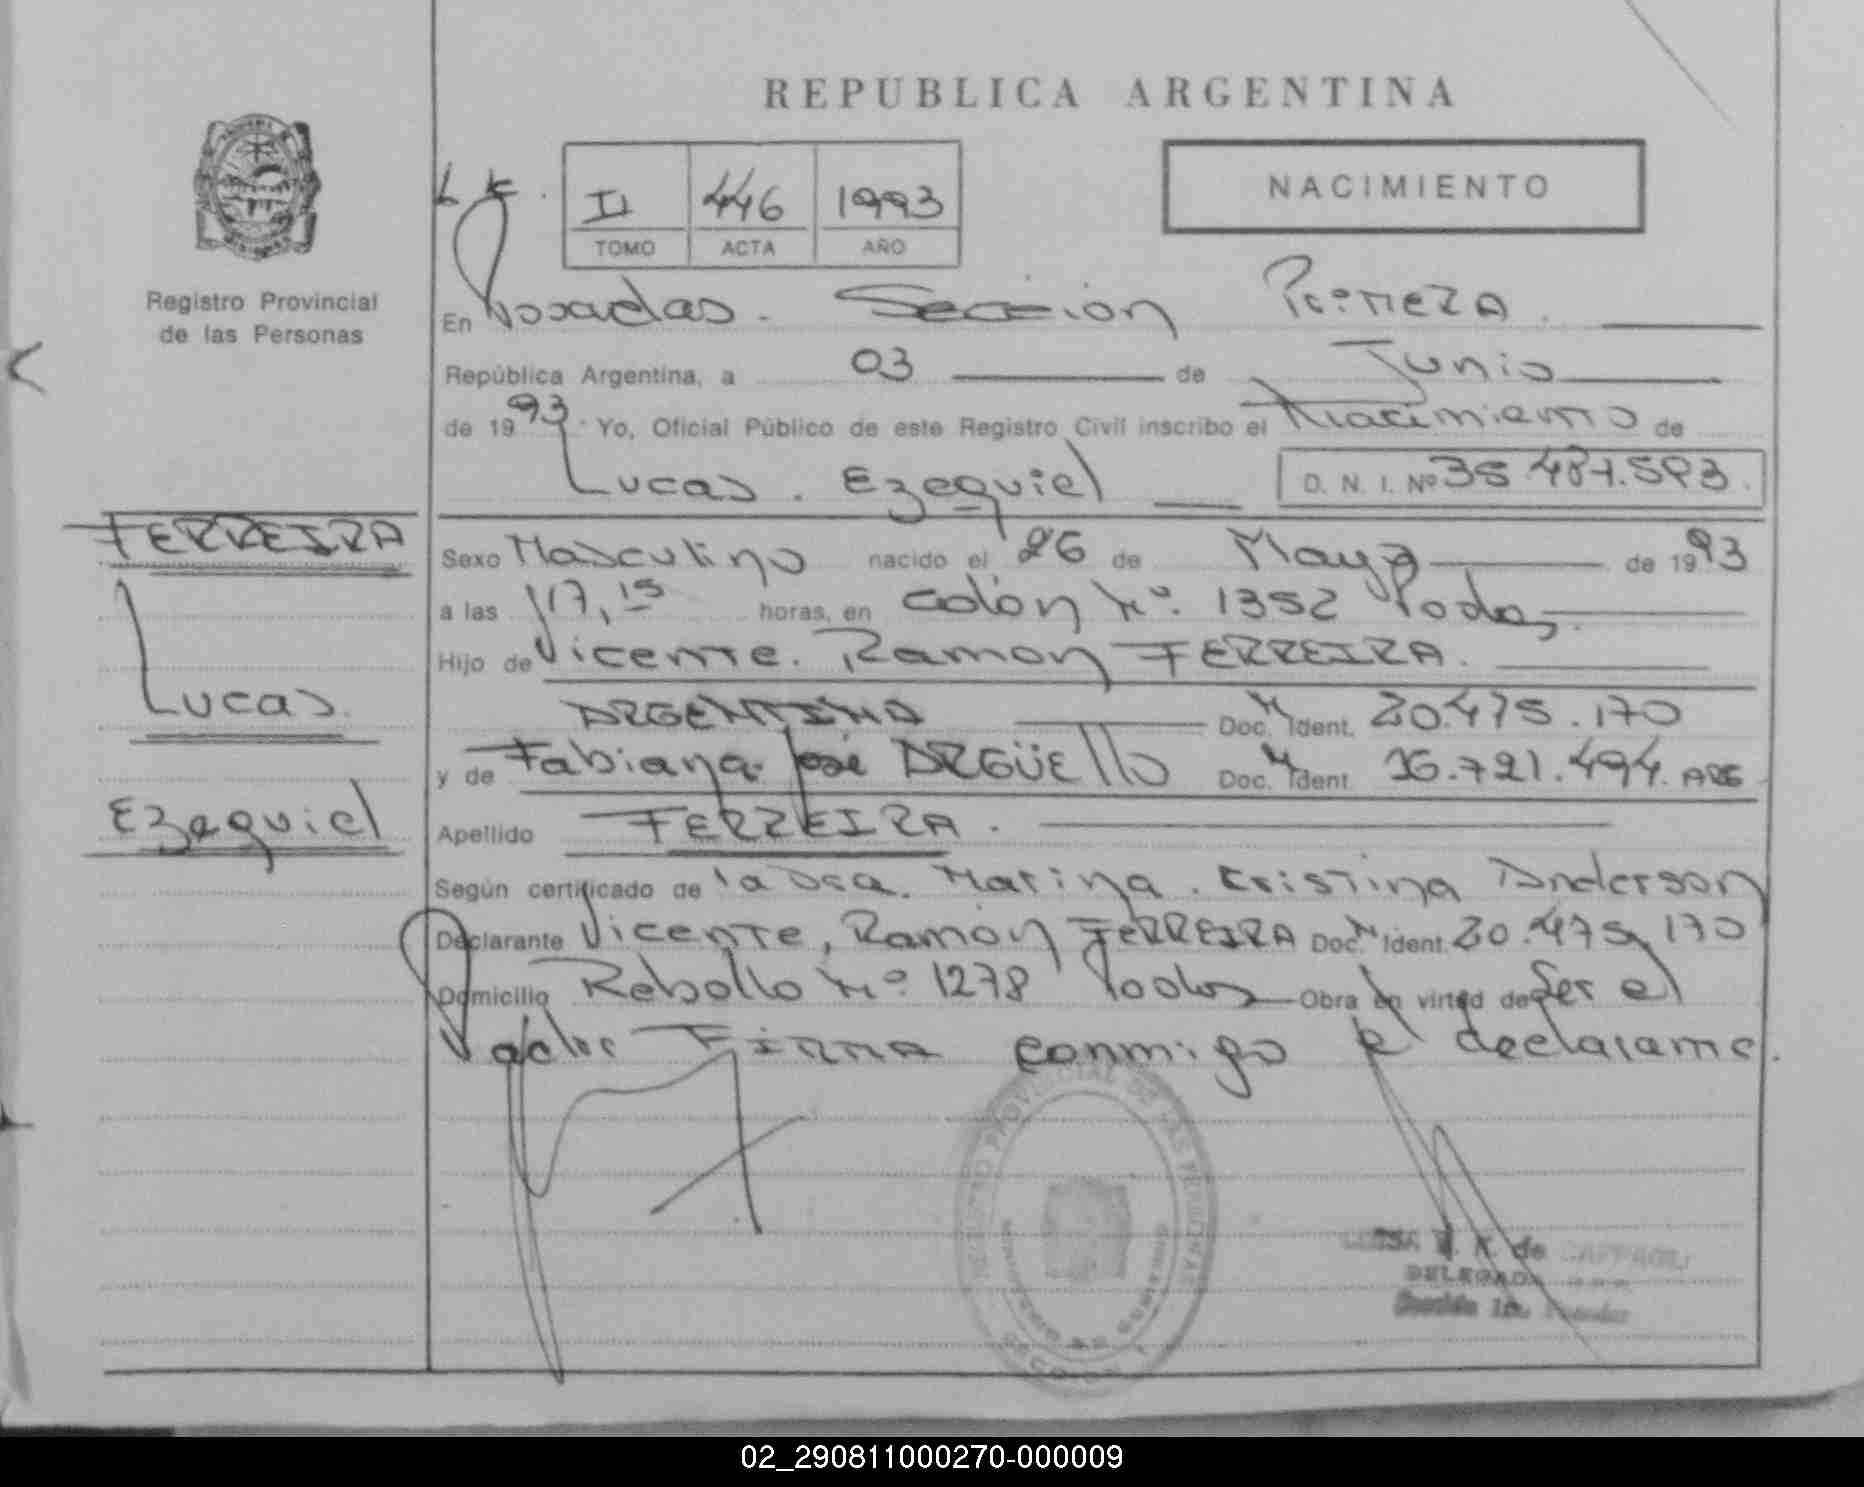 REPUBLICA ARGENTINA
II 446 1993
TOMO ACTA AÑO
NACIMIENTO
Registro Provincial
de las Personas
En Posadas. Sección Primera.
República Argentina, a 03 de Junio
de 1993. Yo, Oficial Público de este Registro Civil inscribo el Nacimiento de
Lucas. Ezequiel D. N. I. Nº 35.487.593.
FERREIRA
Lucas.
Ezequiel
Sexo Masculino nacido el 26 de Mayo de 1993
a las 17,15 horas, en Colón Nº. 1352 Pdas.
Hijo de Vicente. Ramon FERREIRA.
ARGENTINA Doc. Ident. 20.475.170
y de Fabiana José ARGÜEllo Doc. Ident. 16.721.494. ARG
Apellido FERREIRA.
Según certificado de la Dra. Marina. Cristina Anderson
Declarante Vicente, Ramón FERREIRA Doc. Ident. 20.475.170
Domicilio Rebollo Nº 1278 Pdas Obra en virtud de Ser el
Padre FIRMA conmigo el declarante.
REGISTRO PROVINCIAL DE LAS PERSONAS
DELEGADA
02_290811000270-000009